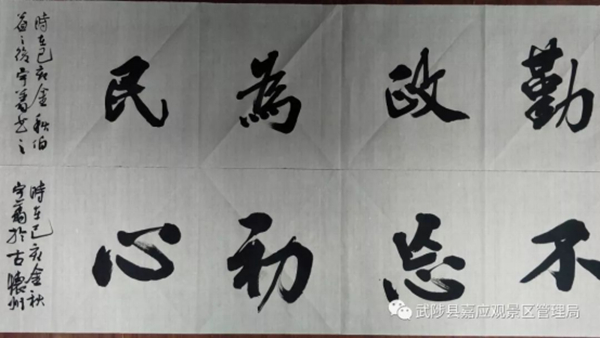 勤政為民
時在己亥金秋伯
後守義書之
不忘初心
時在己亥金秋
守義於古懷州
武陟县嘉应观景区管理局